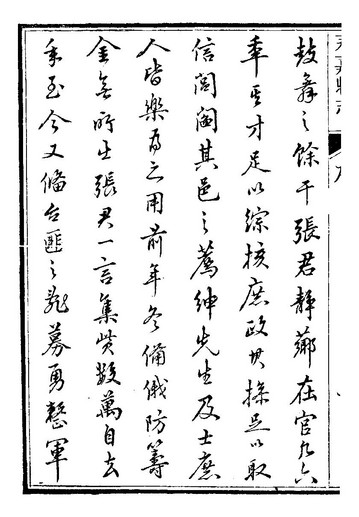 鼓舞之餘干張君静薌在官只六
年其才足以綜核庶政其操足以取
信閭閻其邑之薦紳先生及士庶
人皆樂為之用前年冬備俄防籌
金無所出張君一言集貲數萬自去
年至今又俻台匪之亂募勇慤軍